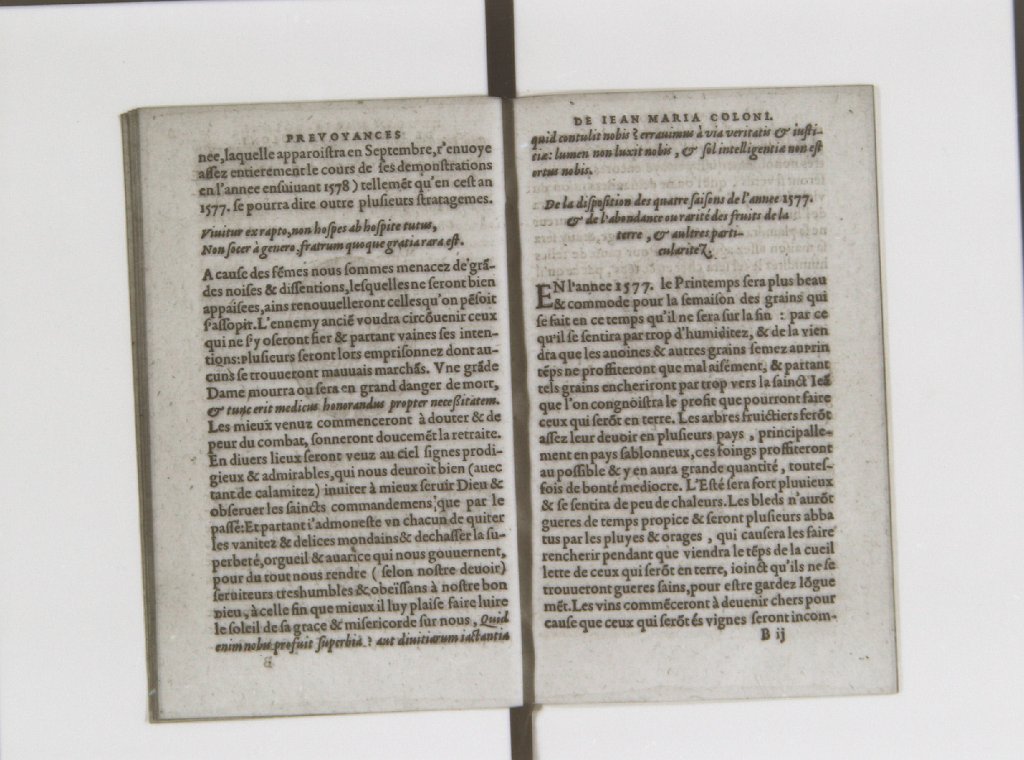 PREVOYANCES
nee, laquelle apparoistra en Septembre, r'enuoye
assez entierement le cours de ses demonstrations
en l'annee ensuiuant 1578) tellemẽt qu'en cest an
1577. se pourra dire outre plusieurs stratagemes.
Viuitur ex rapto, non hospes ab hospite tutus,
Non socer à genero, fratrum quoque gratia rara est.
A cause des fẽmes nous sommes menacez de grã-
des noises & dissentions, lesquelles ne seront bien
appaisees, ains renouuelleront celles qu'on pẽsoit
s'assopir. L'ennemy anciẽ voudra circõuenir ceux
qui ne s'y oseront fier & partant vaines ses inten-
tions: plusieurs seront lors emprisonnez dont au-
cuns se trouueront mauuais marchãs. Vne grãde
Dame mourra ou sera en grand danger de mort,
& tunc erit medicus honorandus propter necessitatem.
Les mieux venuz commenceront à douter & de
peur du combat, sonneront doucemẽt la retraite.
En diuers lieux seront veuz au ciel signes prodi-
gieux & admirables, qui nous deuroit bien (auec
tant de calamitez) inuiter à mieux seruir Dieu &
obseruer les saincts commandemens, que par le
passé: Et partant i'admoneste vn chacun de quiter
les vanitez & delices mondains & dechasser la su-
perbeté, orgueil & auarice qui nous gouuernent,
pour du tout nous rendre (selon nostre deuoir)
seruiteurs treshumbles & obeïssans à nostre bon
Dieu, à celle fin que mieux il luy plaise faire luire
le soleil de sa grace & misericorde sur nous, Quid
enim nobis profuit superbia? aut diuitiarum iactantia
B
DE IEAN MARIA COLONI.
quid contulit nobis? errauimus à via veritatis & iusti-
tiæ: lumen non luxit nobis, & sol intelligentiæ non est
ortus nobis.
De la disposition des quatre saisons de l'annee 1577.
& de l'abondance ou rarité des fruits de la
terre, & aultres parti-
cularitez.
EN l'annee 1577. le Printemps sera plus beau
& commode pour la semaison des grains qui
se fait en ce temps qu'il ne sera sur la fin: par ce
qu'il se sentira par trop d'humiditez, & de la vien
dra que les auoines & autres grains semez au prin
tẽps ne proffiteront que mal aisément, & partant
tels grains encheriront par trop vers la sainct Ieã
que l'on congnoistra le profit que pourront faire
ceux qui serõt en terre. Les arbres fruictiers ferõt
assez leur deuoir en plusieurs pays, principalle-
ment en pays sablonneux, ces foings proffiteront
au possible & y en aura grande quantité, toutes-
fois de bonté mediocre. L'Esté sera fort pluuieux
& se sentira de peu de chaleurs. Les bleds n'aurõt
gueres de temps propice & seront plusieurs abba
tus par les pluyes & orages, qui causera les faire
rencherir pendant que viendra le tẽps de la cueil
lette de ceux qui serõt en terre, ioinct qu'ils ne se
trouueront gueres sains, pour estre gardez lõgue
mẽt. Les vins commẽceront à deuenir chers pour
cause que ceux qui serõt és vignes seront incom-
B ij